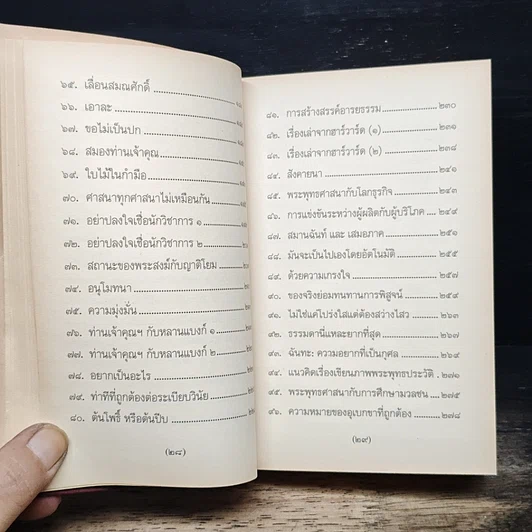 ๖๕. เลื่อนสมณศักดิ์
๖๖. เอาละ
๖๗. ขอไม่เป็นปก
๖๘. สมองท่านเจ้าคุณ
๖๙. ใบไม้ในกำมือ
๗๐. ศาสนาทุกศาสนาไม่เหมือนกัน
๗๑. อย่าปลงใจเชื่อนักวิชาการ ๑
๗๒. อย่าปลงใจเชื่อนักวิชาการ ๒
๗๓. สถานะของพระสงฆ์กับญาติโยม
๗๔. อนุโมทนา
๗๕. ความมุ่งมั่น
๗๖. ท่านเจ้าคุณฯ กับหลานแบงก์ ๑
๗๗. ท่านเจ้าคุณฯ กับหลานแบงก์ ๒
๗๘. อยากเป็นอะไร
๗๙. ท่าทีที่ถูกต้องต่อระเบียบวินัย
๘๐. ต้นโพธิ์ หรือต้นปีบ
(๒๘)
๘๑. การสร้างสรรค์อารยธรรม ๒๓๐
๘๒. เรื่องเล่าจากฮาร์วาร์ด (๑) ๒๓๑
๘๓. เรื่องเล่าจากฮาร์วาร์ด (๒) ๒๓๘
๘๔. สังคายนา ๒๔๑
๘๕. พระพุทธศาสนากับโลกธุรกิจ ๒๔๓
๘๖. การแข่งขันระหว่างผู้ผลิตกับผู้บริโภค ๒๔๙
๘๗. สมานฉันท์ และ เสมอภาค ๒๕๑
๘๘. มันจะเป็นไปเองโดยอัตโนมัติ ๒๕๕
๘๙. ด้วยความเกรงใจ ๒๕๗
๙๐. ของจริงย่อมทนทานการพิสูจน์ ๒๕๙
๙๑. ไม่ใช่แค่โปร่งใสแต่ต้องสว่างไสว ๒๖๓
๙๒. ธรรมดานี่แหละยากที่สุด ๒๖๗
๙๓. ฉันทะ: ความอยากที่เป็นกุศล ๒๖๙
๙๔. แนวคิดเรื่องเขียนภาพพระพุทธประวัติ ๒๗๑
๙๕. พระพุทธศาสนากับการศึกษามวลชน ๒๗๕
๙๖. ความหมายของอุเบกขาที่ถูกต้อง ๒๗๘
(๒๙)